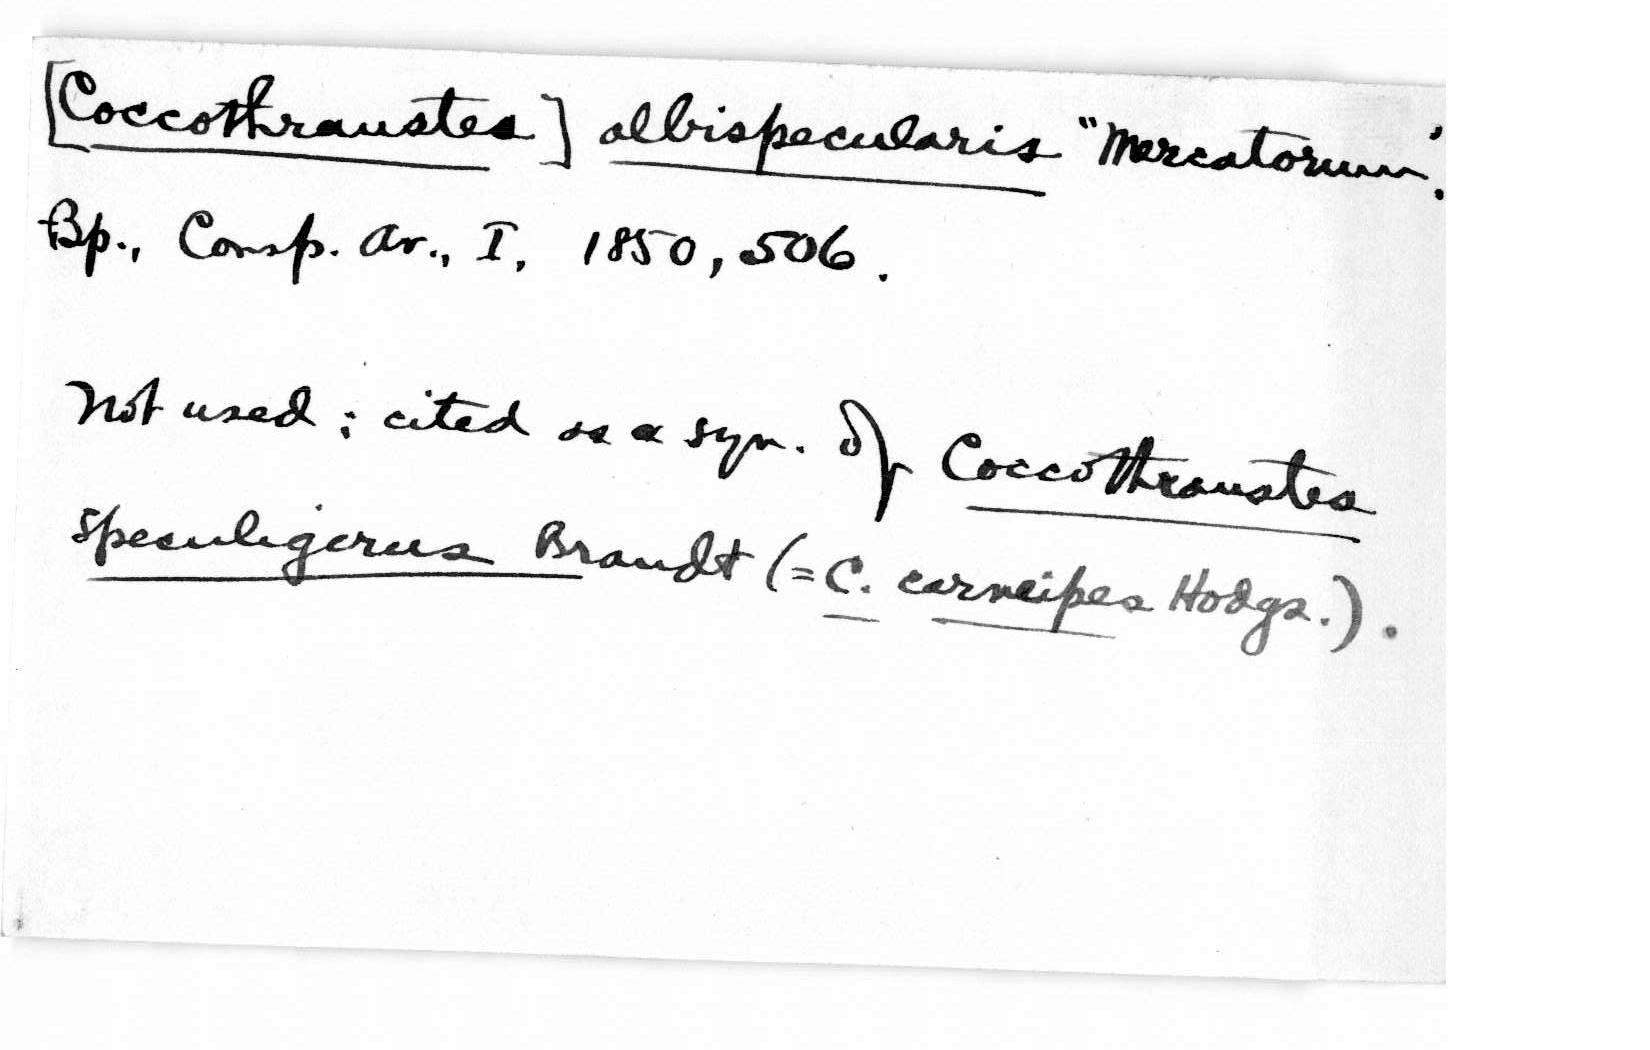 [Coccothraustes] albispecularis "Mercatorum".
Bp., Consp. Av., I, 1850, 506.
Not used; cited as a syn. of Coccothraustes
speculigerus Brandt (= C. carneipes Hodgs.).